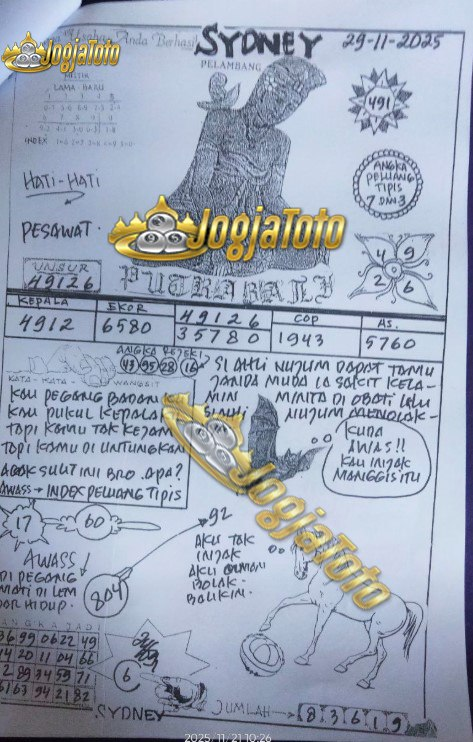 Anda Berhasil
SYDNEY
29-11-2025
JOGJATOTO
PELAMBANG
MISTIK
LAMA BARU
INDEX
491
HATI-HATI
ANGKA
PELUANG
TIPIS
7 DAN 3
PESAWAT.
JOGJATOTO
4 9
2 6
UNSUR
49126
PUTRA BALI
KEPALA
4912
EKOR
6580
49126
35780
COP
1943
AS.
5760
ANGKA REJEKI
43 95 28 16
SI AHLI NUJUM DAPAT TAMU
JANDA MUDA IA SAKIT KELA-
MIN MINTA DI OBATI LALU
SI AHLI NUJUM MENOLAK-
KATA-KATA WANGSIT
KAU PEGANG BADAN
KAU PUKUL KEPALA
TAPI KAMU TAK KEJAM
TAPI KAMU DI UNTUNGKAN
AGAK SULIT INI BRO. APA?
AWASS → INDEX PELUANG TIPIS
KUDA
AWAS!!
KAU INJAK
MANGGIS ITU
JOGJATOTO
17
60
92
804
AKU TAK
INJAK
AKU CUMAN
BOLAK-
BALIKIN.
AWASS!
DI PEGANG
MATI DI LEM
PAR HIDUP.
ANGKA JADI
36 99 06 22 49
14 20 11 04 66
2 89 34 59 71
51 63 94 21 82
6
SYDNEY
JUMLAH → 8.3.6.1.9
2025.11.21 10:26